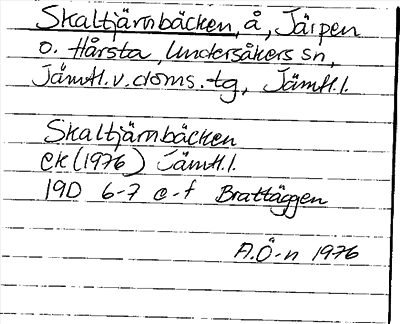 Skaltjärnbäcken, å, Järpen
o. Hårsta, Undersåkers sn,
Jämtl. v. doms. tg, Jämtl. l.
Skaltjärnbäcken
ek (1976) Jämtl. l.
19D 6-7 e-f Brattäggen
A.Ö-n 1976